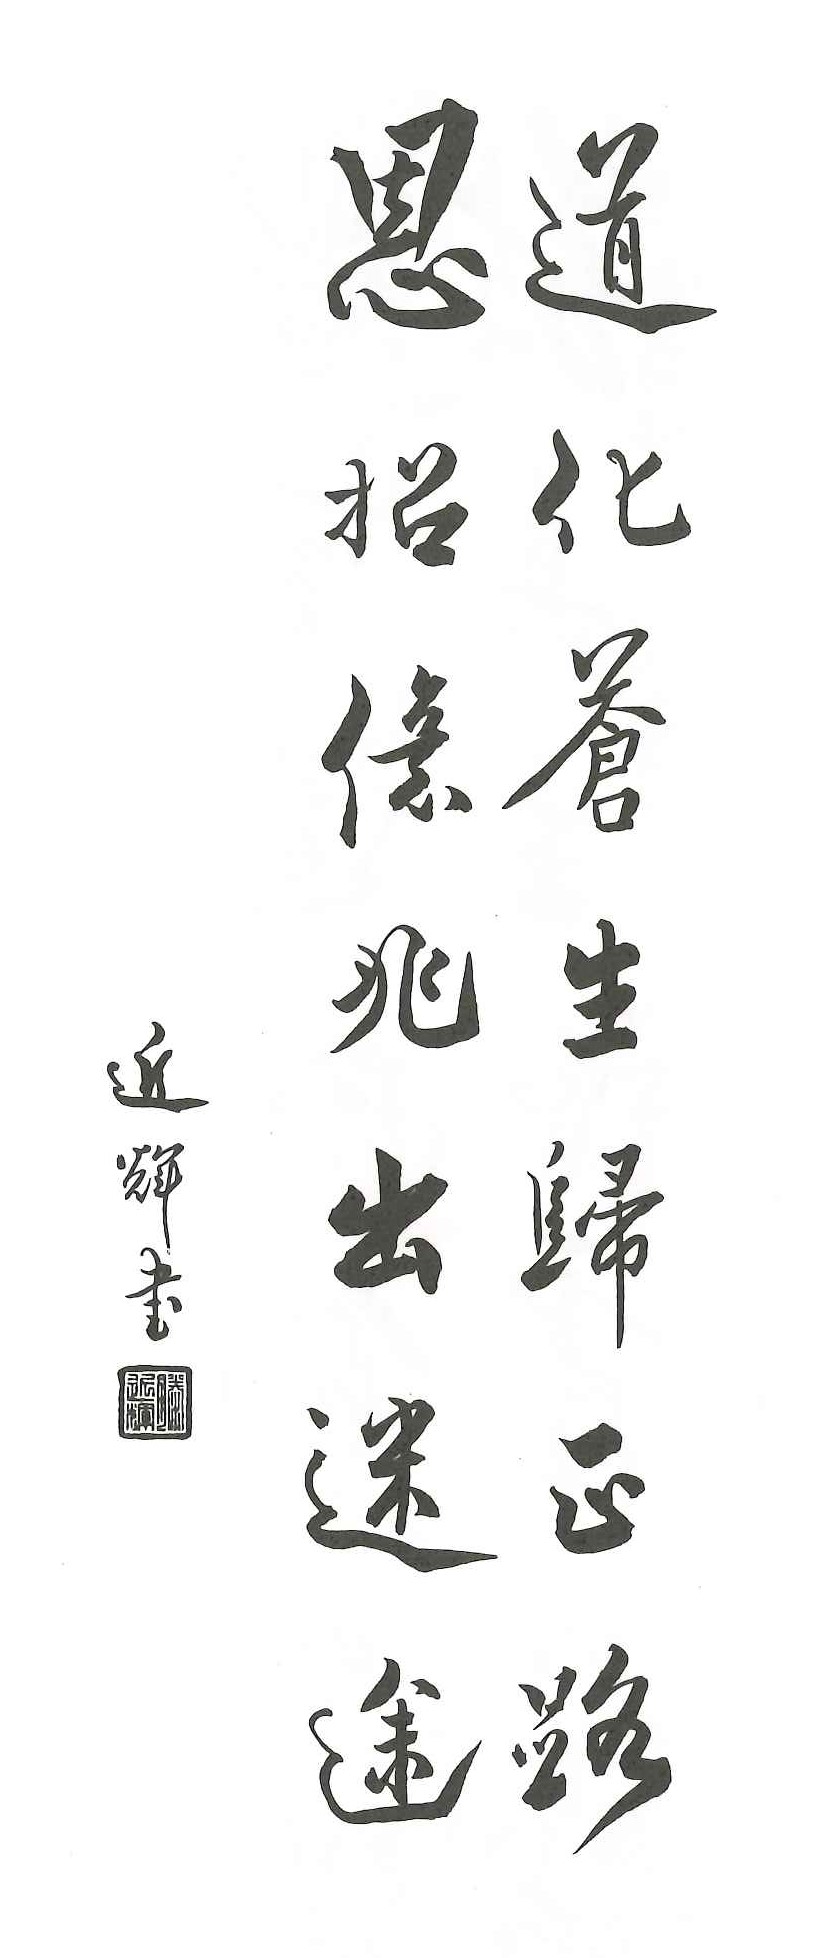 道化蒼生歸正路
恩招億兆出迷途
近輝书